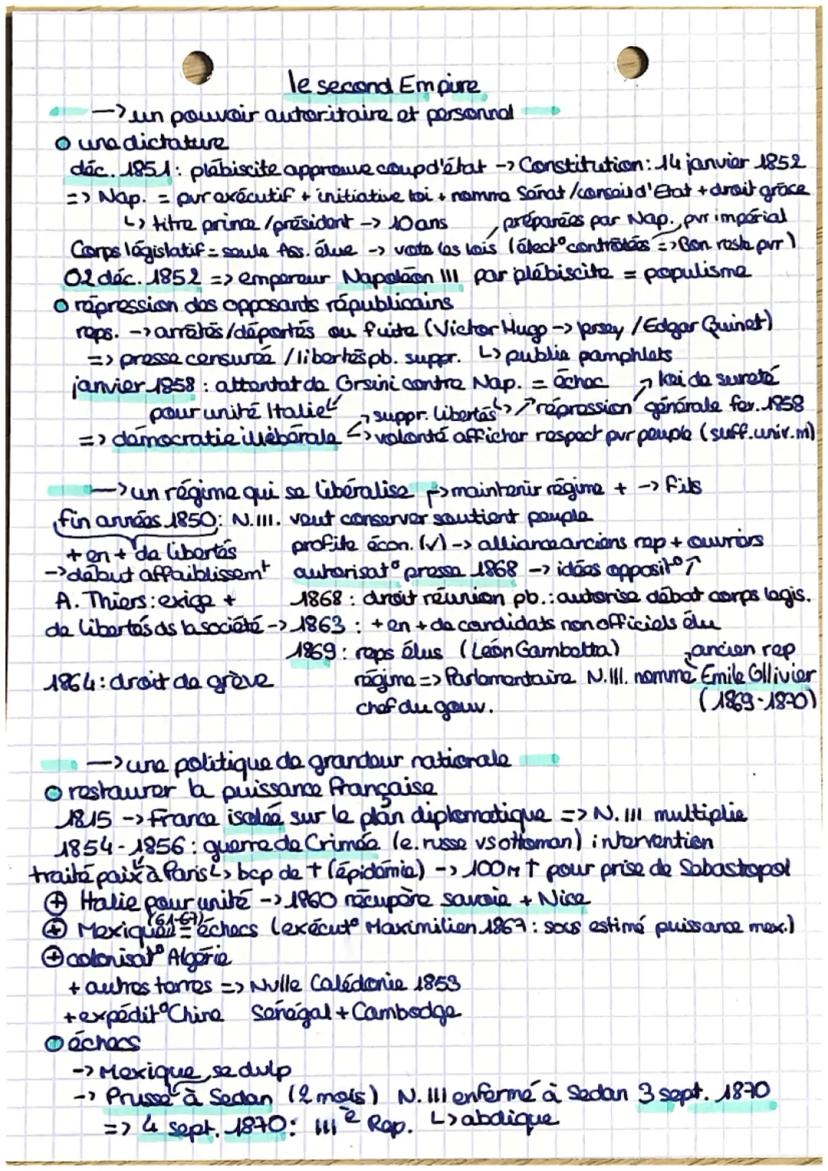 le second Empire
—> un pouvoir autoritaire et personnel
une dictature
déc. 1851 : plébiscite approuve coup d'état -> Constitution : 14 janvier 1852
=> Nap. = pvr exécutif + initiative loi + nomme Sénat / conseil d'Etat + droit grâce
↳ titre prince / président -> 10 ans préparées par Nap. pvr impérial
Corps législatif = seule Ass. élue -> vote les lois (élect° contrôlées => Bon. reste pvr)
02 déc. 1852 => empereur Napoléon III par plébiscite = populisme
répression des opposants républicains
reps. -> arrêtés / déportés ou fuite (Victor Hugo -> Jersey / Edgar Quinet)
=> presse censurée / libertés pb. suppr. ↳ publie pamphlets
janvier 1858 : attentat de Orsini contre Nap. = échec ↗ loi de sureté
pour unité Italie ↗ suppr. libertés ↳ ↗ répression générale fev. 1858
=> démocratie illibérale ↳ volonté afficher respect pvr peuple (suff. univ. m)
—> un régime qui se libéralise ↱ maintenir régime + -> fils
fin années 1850 : N.III. veut conserver soutient peuple
+ en + de libertés profite écon. (√) -> alliance anciens rep + ouvriers
-> début affaiblissemt autorisat° presse 1868 -> idées opposit° ↑
A. Thiers : exige + 1868 : droit réunion pb. : autorise débat corps legis.
de libertés ds la société -> 1863 : + en + de candidats non officiels élu
1869 : reps élus (Léon Gambetta) ancien rep
1864 : droit de grève régime => Parlementaire N.III. nomme Emile Ollivier
chef du gouv. (1869-1870)
—> une politique de grandeur nationale
restaurer la puissance française
1815 -> France isolée sur le plan diplomatique => N. III multiplie
1854-1856 : guerre de Crimée (e. russe vs ottoman) intervention
traité paix à Paris ↳ bcp de † (épidémie) -> 100 M † pour prise de Sebastopol
⊕ Italie pour unité -> 1860 récupère savoie + Nice
⊕ Mexique (61-67) = échecs (exécut° Maximilien 1867 : sous estimé puissance mex.)
⊕ colonisat° Algérie
+ autres terres => Nvlle Calédonie 1853
+ expédit° Chine Sénégal + Cambodge
échecs
-> Mexique se dvlp
-> Prusse à Sedan (2 mois) N. III enfermé à Sedan 3 sept. 1870
=> 4 sept. 1870 : IIIè Rep. ↳ abdique